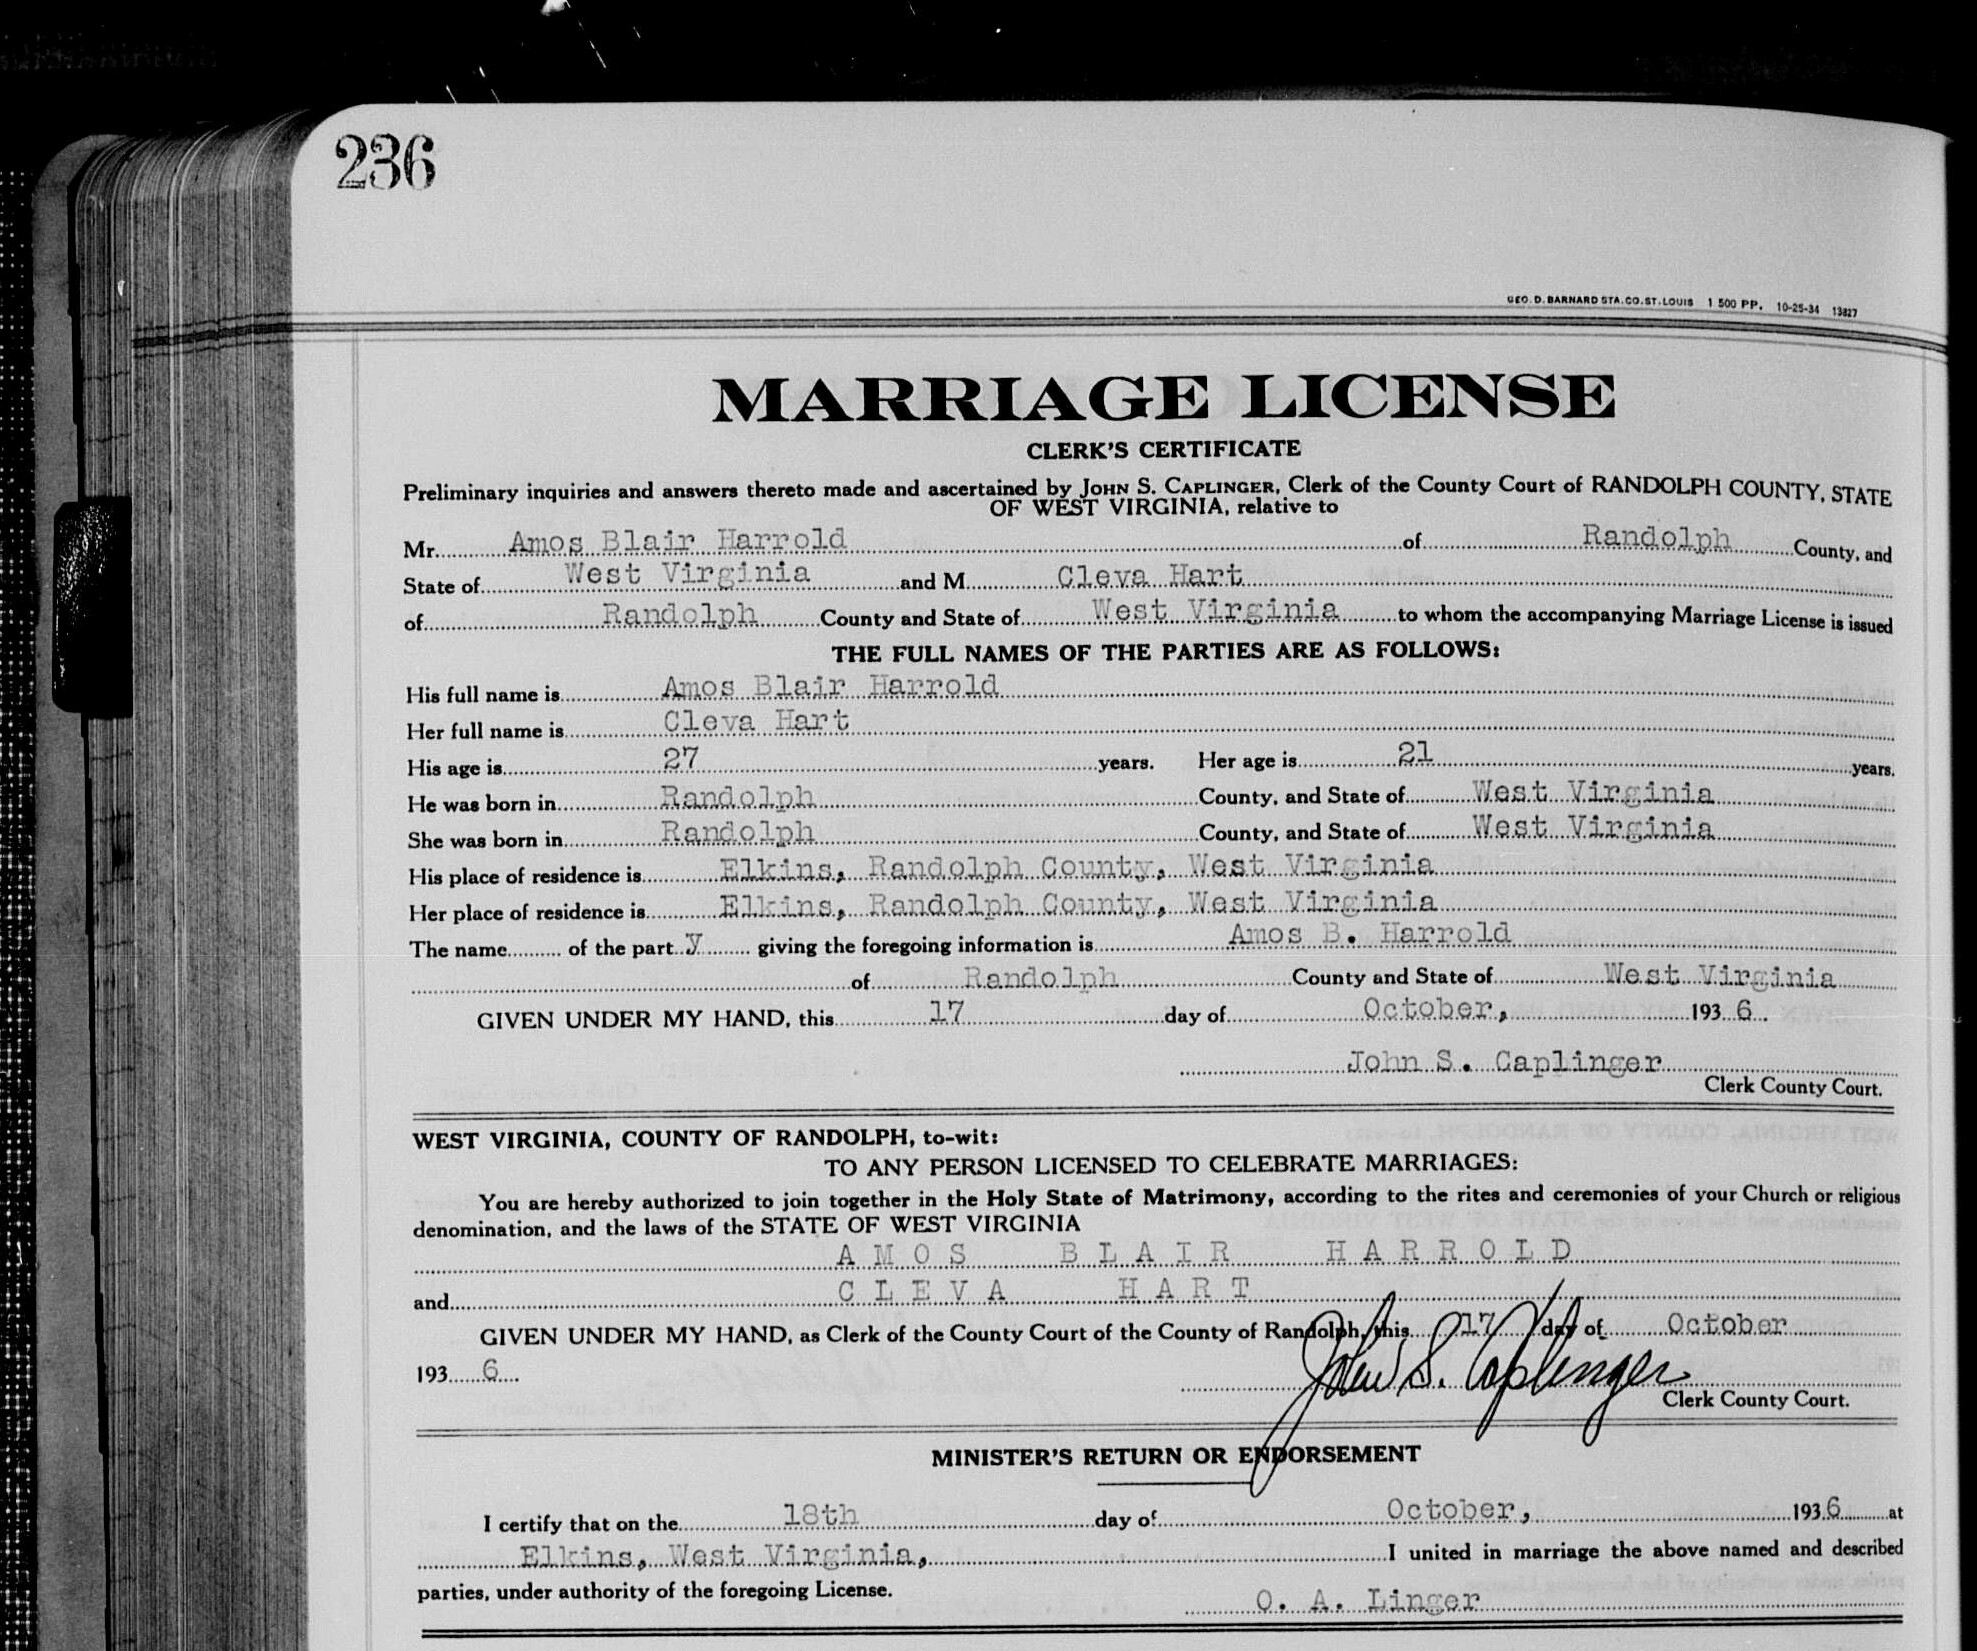 236
GEO. D. BARNARD STA. CO. ST. LOUIS 1 500 PP. 10-25-34 13827
MARRIAGE LICENSE
CLERK'S CERTIFICATE
Preliminary inquiries and answers thereto made and ascertained by JOHN S. CAPLINGER, Clerk of the County Court of RANDOLPH COUNTY, STATE
OF WEST VIRGINIA, relative to
Mr. Amos Blair Harrold of Randolph County, and
State of West Virginia and M Cleva Hart
of Randolph County and State of West Virginia to whom the accompanying Marriage License is issued
THE FULL NAMES OF THE PARTIES ARE AS FOLLOWS:
His full name is Amos Blair Harrold
Her full name is Cleva Hart
His age is 27 years. Her age is 21 years.
He was born in Randolph County, and State of West Virginia
She was born in Randolph County, and State of West Virginia
His place of residence is Elkins, Randolph County, West Virginia
Her place of residence is Elkins, Randolph County, West Virginia
The name of the part y giving the foregoing information is Amos B. Harrold
of Randolph County and State of West Virginia
GIVEN UNDER MY HAND, this 17 day of October, 193 6.
John S. Caplinger
Clerk County Court.
WEST VIRGINIA, COUNTY OF RANDOLPH, to-wit:
TO ANY PERSON LICENSED TO CELEBRATE MARRIAGES:
You are hereby authorized to join together in the Holy State of Matrimony, according to the rites and ceremonies of your Church or religious
denomination, and the laws of the STATE OF WEST VIRGINIA
AMOS BLAIR HARROLD
and CLEVA HART
GIVEN UNDER MY HAND, as Clerk of the County Court of the County of Randolph, this 17 day of October
193 6. John S. Caplinger
Clerk County Court.
MINISTER'S RETURN OR ENDORSEMENT
I certify that on the 18th day of October, 193 6 at
Elkins, West Virginia, I united in marriage the above named and described
parties, under authority of the foregoing License.
O. A. Linger